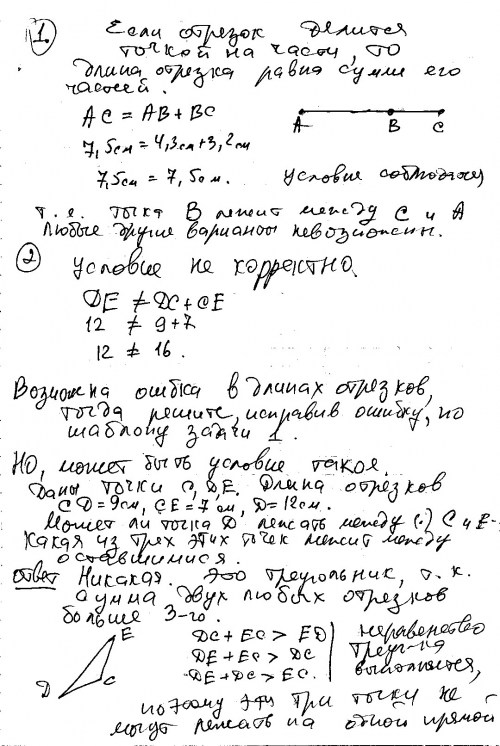 1. Если отрезок делится
точкой на части, то
длина отрезка равна сумме его
частей.
AC = AB + BC
A B C
7,5см = 4,3см + 3,2см
7,5см = 7,5см. условие соблюдается
т.е. точка B лежит между C и A
Любые другие варианты невозможны.
2 Условие не корректно.
DE ≠ DC + CE
12 ≠ 9 + 7
12 ≠ 16.
Возможна ошибка в длинах отрезков,
тогда решите, исправив ошибку, по
шаблону задачи 1.
Но, может быть условие такое.
Даны точки C, D, E. Длина отрезков
CD = 9см, CE = 7см, D = 12см.
Может ли точка D лежать между (·) C и E.
Какая из трех этих точек лежит между
оставшимися.
Ответ Никакая. Это треугольник, т.к.
сумма двух любых отрезков
больше 3-го.
E
D C
DC + EC > ED
DE + EC > DC
DE + DC > EC.
неравенство
треуг-ка
выполняется,
поэтому эти три точки не
могут лежать на одной прямой